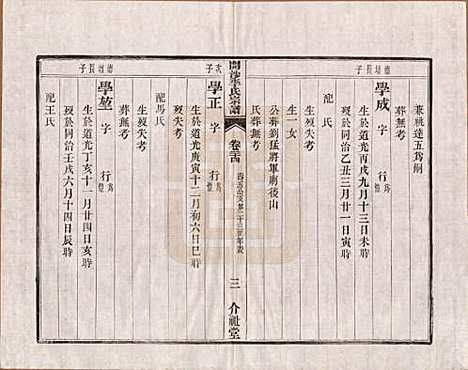 德培長子
兼祧達五爲嗣
葬無考
學成 字 行
生於道光丙戌九月十三日未時
歿於同治乙丑三月廿一日寅時
生一女
生歿失考
公葬劉猛將軍廟後山
氏葬無考
氏宗譜
卷六
三 介祉堂
次子
學正 字 行
生於道光庚寅十二月初六日巳時
歿失考
配馬氏
生歿失考
葬無考
長子
學堃 字 行
生於道光丁亥十一月廿四日亥時
歿於同治壬戌六月十四日辰時
配王氏